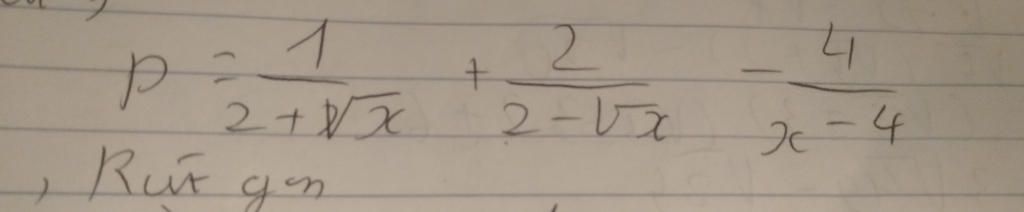 P = 1/(2+√x) + 2/(2-√x) - 4/(x-4)
, Rút gọn